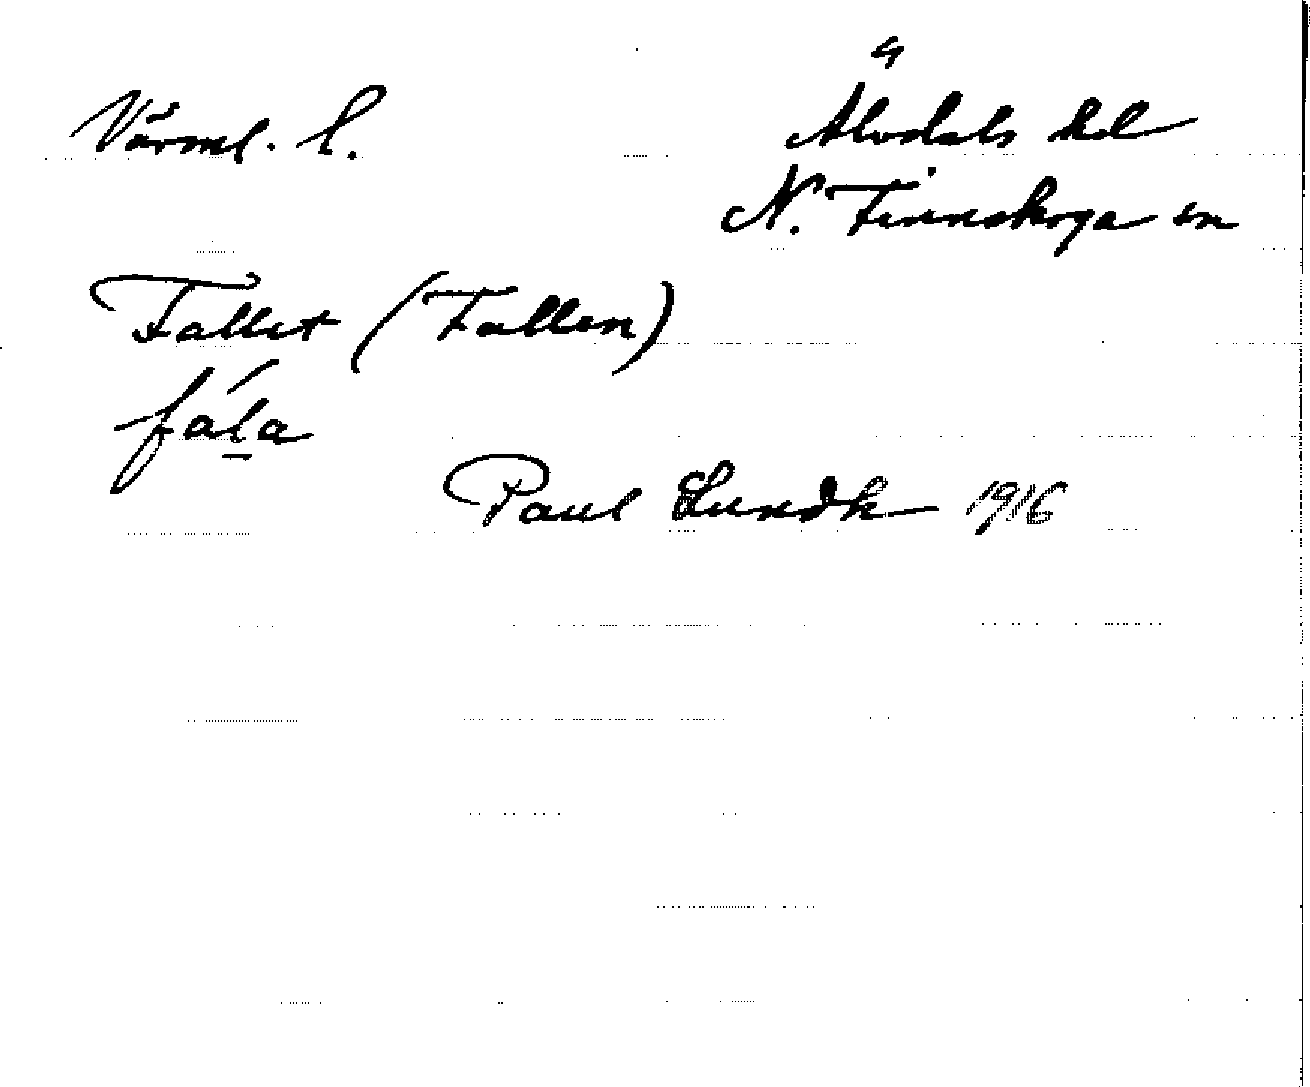 Värml. l. Älvdals hd
N. Finnskoga sn
Fallet (Fallen)
fáḻa
Paul Lundh 1916